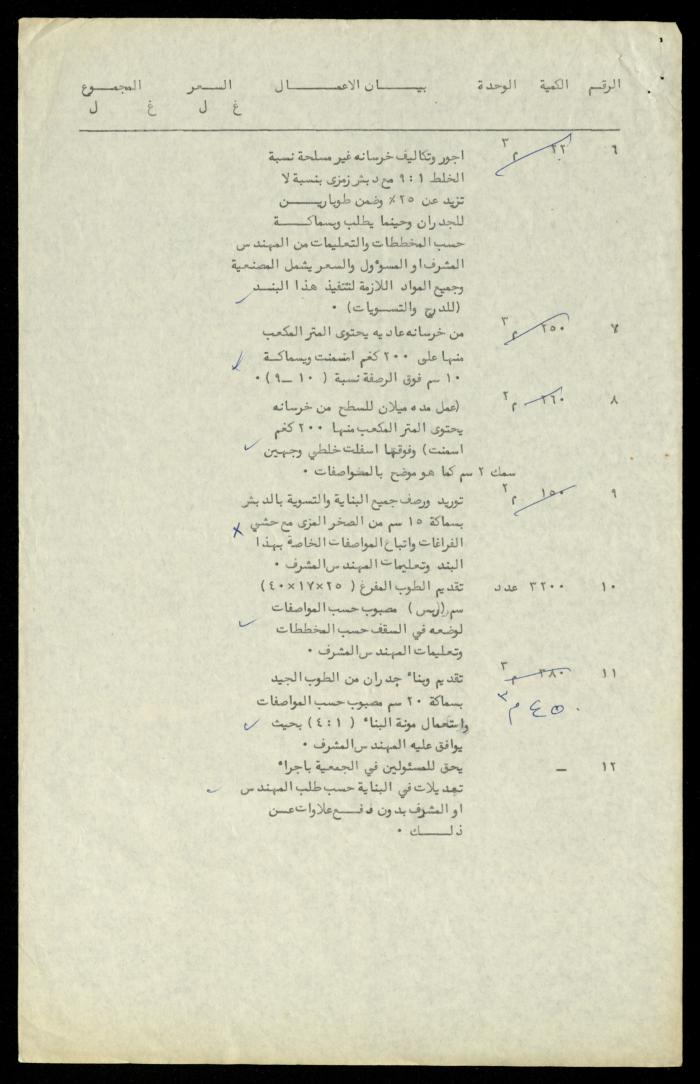 الرقم الكمية الوحدة بيـــان الاعمـــــال السـعر المجمـوع
غ ل غ ل
٦ ٢٢ م٣ اجور وتكاليف خرسانه غير مسلحة نسبة
الخلط ١ : ٩ مع دبش رمزى بنسبة لا
تزيد عن ٢٥٪ وضمن طوباريـــن
للجدران وحينما يطلب وبسماكـــة
حسب المخططات والتعليمات من المهندس
المشرف او المسؤول والسعر يشمل المصنعية
وجميع المواد اللازمة لتنفيذ هذا البنـد
(للدرج والتسـويات) ٠
٧ ٢٥٠ م٣ من خرسانه عاديه يحتوى المتر المكعب
منها على ٢٠٠ كغم اسمنت وبسماكـة
١٠ سم فوق الرصفة نسبة ( ١٠ ــ ٩ ) ٠
٨ ٢٦٠ م٢ (عمل مده ميلان للسطح من خرسانه
يحتوى المتر المكعب منها ٢٠٠ كغم
اسمنت) وفوقها اسفلت خلطي وجهين
سمك ٢ سم كما هو موضح بالمواصفات ٠
٩ ١٥٠ م٢ توريد ورصف جميع البناية والتسوية بالدبش
بسماكة ١٥ سم من الصخر المزى مع حشي
الفراغات واتباع المواصفات الخاصة بهذا
البند وتعليمات المهندس المشرف ٠
١٠ ٣٢٠٠ عدد تقديم الطوب المفرغ ( ٢٥×١٧×٤٠)
سم (ربس) مصبوب حسب المواصفات
لوضعه في السقف حسب المخططات
وتعليمات المهندس المشرف ٠
١١ ٣٨٠ م٣ تقديم وبناء جدران من الطوب الجيد
٤٥٠ م٣ بسماكة ٢٠ سم مصبوب حسب المواصفات
واستعمال مونة البناء ( ١ : ٤ ) بحيث
يوافق عليه المهندس المشرف ٠
١٢ ــ يحق للمسئولين في الجمعية باجراء
تعديلات في البناية حسب طلب المهندس
او المشرف بدون دفـــع علاوات عـــن
ذلـــــك ٠